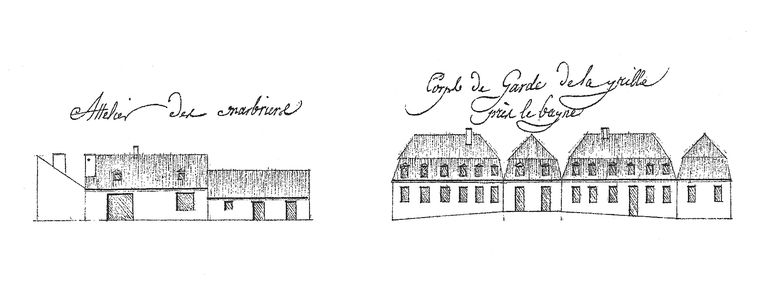 Attelier des marbriers
Corps de Garde de la grille
près le bagne